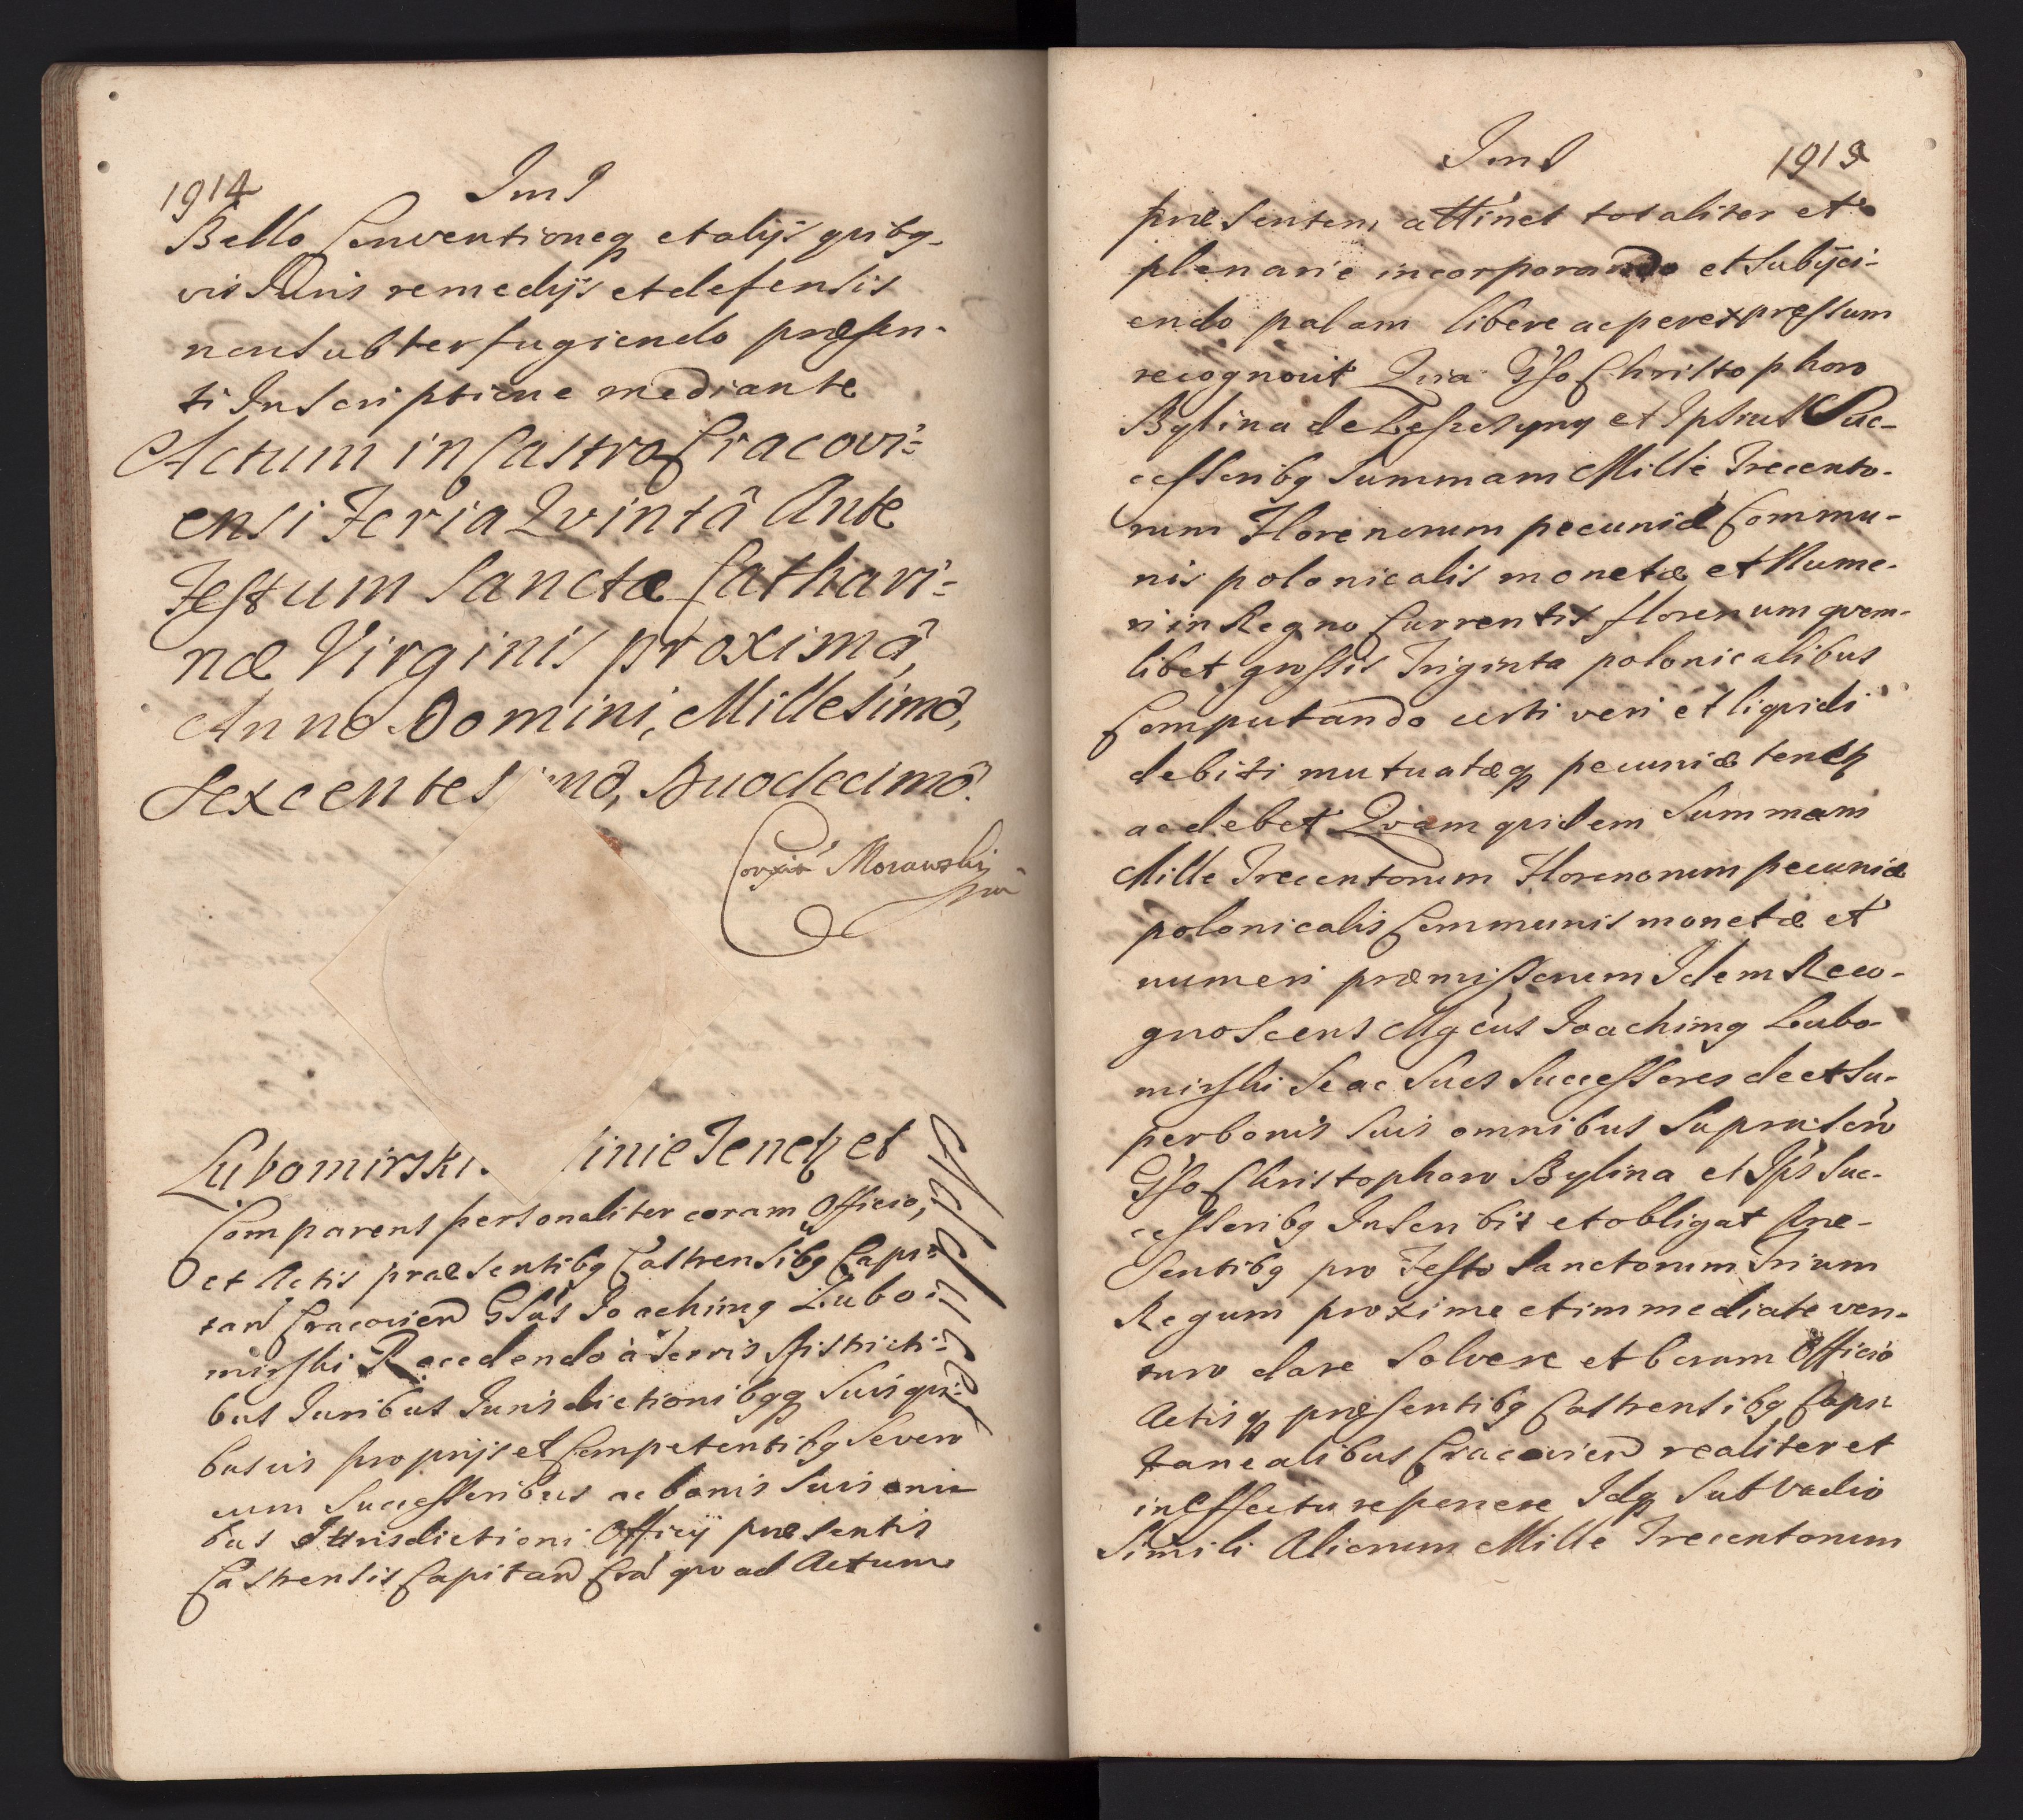 1914
Ind
Bello Conventioneq; et alijs quibq-
vis Iuris remedijs et defensis
non subterfugiendo præsen-
ti Inscriptione mediante
Actum in Castro Cracovi-
ensi Feria Qvintâ Ante
Festum Sanctæ Cathari-
næ Virginis proximâ,
Anno Domini, Millesimô,
Sexcentesimô, Duodecimô.
Morawski
Lubomirski inie Tenetz et
Comparens personaliter coram Officio,
et Actis præsentibq Castrensibq Capi-
tan Cracovien Gsus Joachimq Lubo-
mirski Recedendo à Terris Districti-
bus Iuribus Iurisdictionibqq; suis qui-
busvis proprijs et Competentibq Se vero
cum Successoribus ac bonis suis omni-
bus Iurisdictioni Officij præsentis
Castrensis Capitan Cra quo ad Actum
1915
Ind
præsentem attinet totaliter et
plenarie incorporando et Subijci-
endo palam libere ac per expressum
recognovit Quia Gso Christophoro
Bylina de et Ipsius Suc-
cessoribq Summam Mille Trecento-
rum Florenorum pecuniæ Commu-
nis polonicalis monetæ et Nume-
ri in Regno Currentis florenum qvem-
libet grossis Triginta polonicalibus
Computando iusti veri et liqvidi
debiti mutuatæq; pecuniæ tenetz
ac debet Qvam qvidem Summam
Mille Trecentorum Florenorum pecuniæ
polonicalis Communis monetæ et
numeri præmissorum Idem Reco-
gnoscens Mgcus Joachimq Lubo-
mirski Se ac Suos Successores de et su-
per bonis suis omnibus Suprascri
Gso Christophoro Bylina et Ips Suc-
cessoribq Inscribit et obligat præ-
sentibq pro Festo Sanctorum Trium
Regum proxime et immediate ven-
turo dare Solvere et Coram Officio
Actisq; præsentibq Castrensibq Capi-
tanealibus Cracovien realiter et
in effectu reponere Idq; Sub Vadio
Simili Aliorum Mille Trecentorum